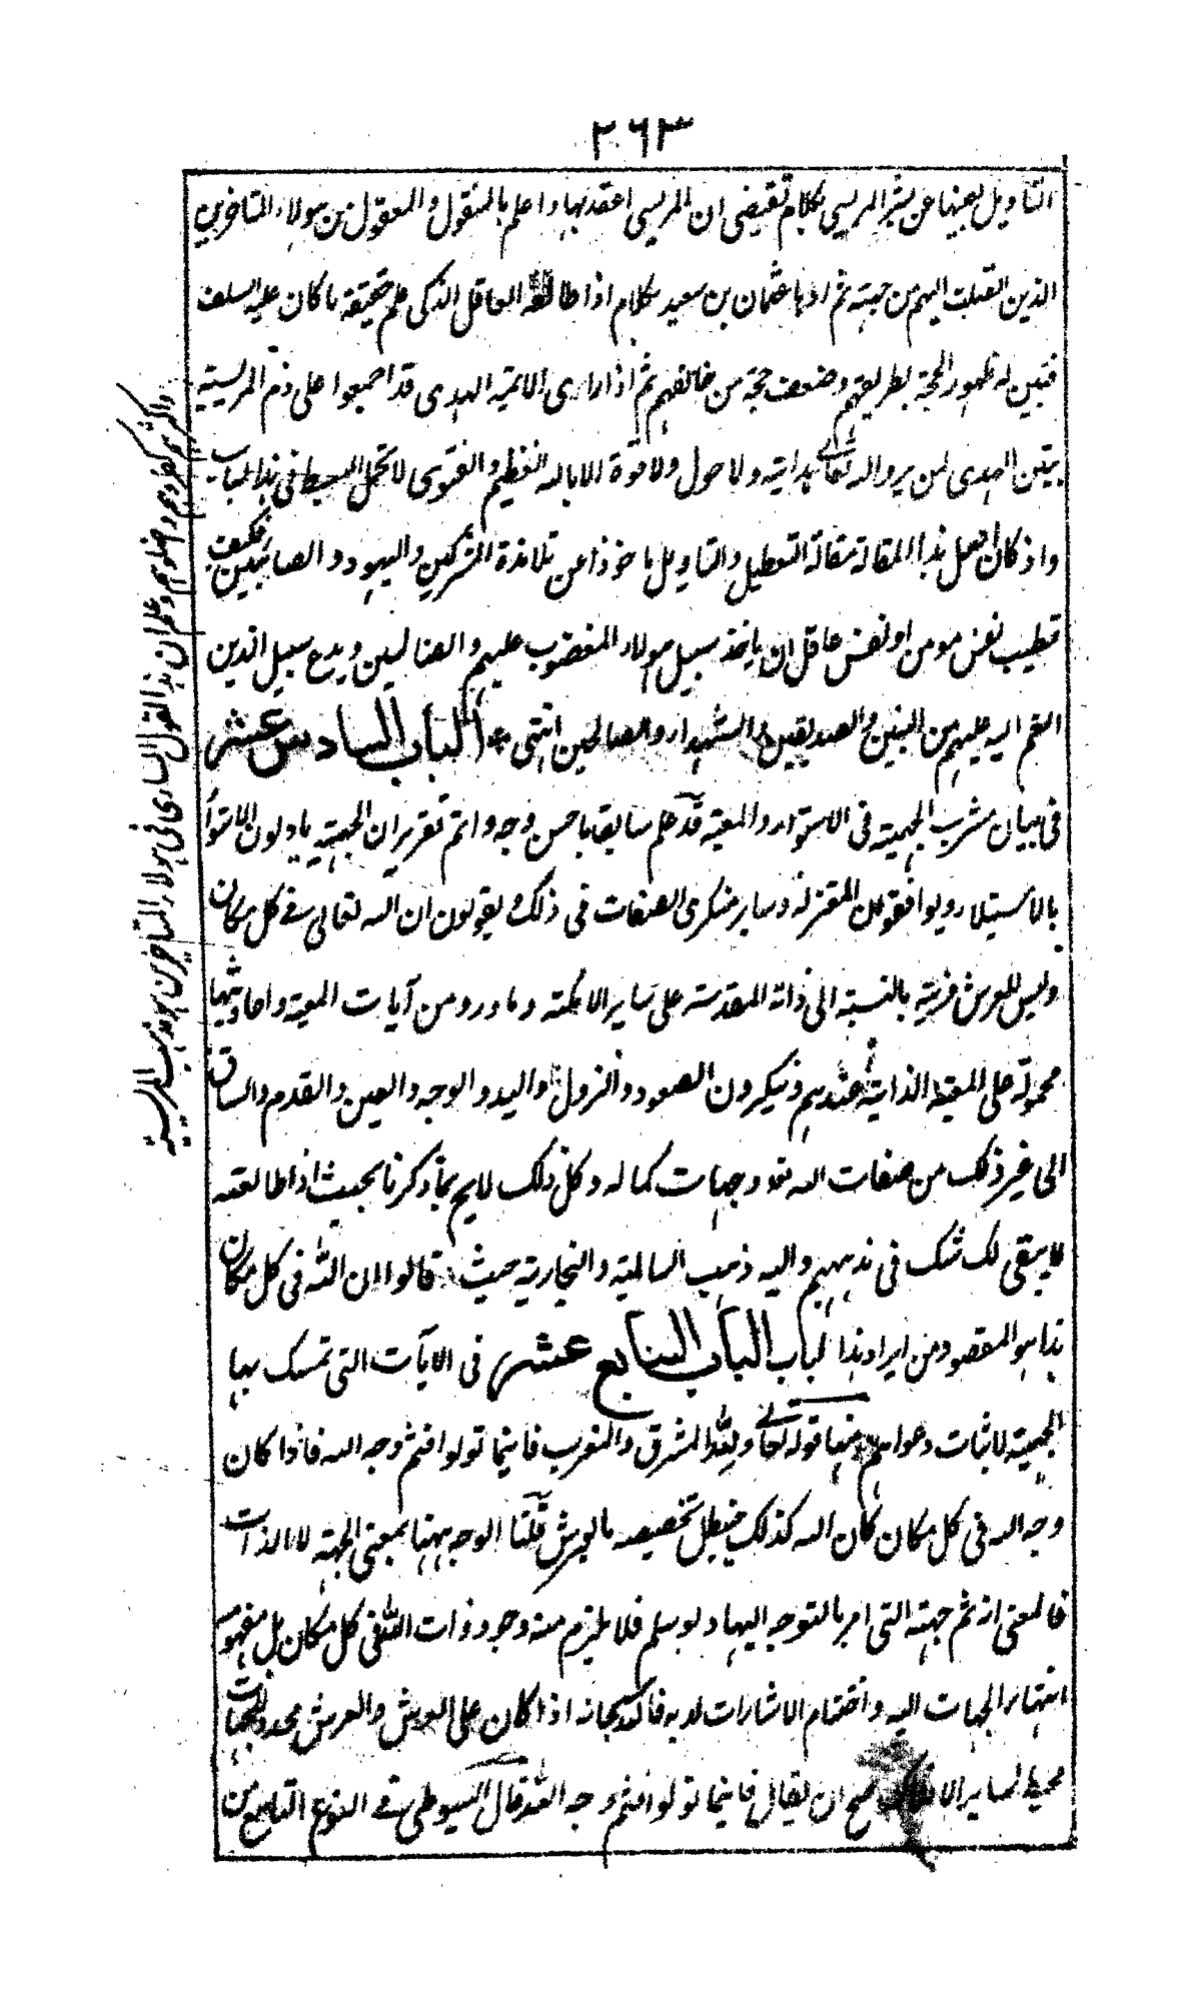 ٢٦٣
التاويل بعينها عن بشر المريسي بكلام تقيضى ان المريسى اعقد بها و اعلم بالمنقول والمعقول من هولاء المتاخرين
الذين اتصلت اليهم من جهته ثم اد عثمان بن سعيد بكلام اذا طالعه العاقل الذكى علم حقيقة ما كان عليه السلف
فتبين له ظهور الحجة لطريقهم وضعف حجة من خالفهم ثم اذا راى الايمة الهدى قد اجمعوا على ذم المريسية
يتبين الهدى لمن يرد الله تعالى هدايته ولا حول ولا قوة الا بالله العظيم والفتوى لا تحمل البسيط فى هذا الباب
واذ كان اصل هذا المقالة مقالة التعطيل والتاويل ماخوذا عن تلامذة المشركين واليهود و الصابئين فكيف
تطيب نفس مومن او نفس عاقل ان ياخذ سبيل هولاء المغضوب عليهم والضالين ويدع سبيل الذين
انعم الله عليهم من النبين والصديقين والشهداء والصالحين انتهى الباب السادس عشر
فى بيان مشرب الجهمية فى الاستواء والمعية قد علم سابقا باحسن وجه واتم تقرير ان الجهمية ياولون الاستوأ
بالاستيلاء ويوافقون المعتزلة وساير منكرى الصفات فى ذلك و يقولون ان الله تعالى فى كل مكان
وليس للعرش مزية بالنسبة الى ذاته المقدسة على ساير الامكنة وما ورد من آيات المعية واحاديثها
محمولة على المعية الذاتية عندهم وينكرون الصعود والنزول واليد و الوجه والعين والقدم والساق
الى غير ذلك من صفات الله تعالى وجهات كماله وكل ذلك لايح بما ذكرنا بحيث اذا طالعته
لا يبقى لك شك فى مذهبهم واليه ذهب السالمية والنجارية حيث قالوا ان الله فى كل مكان
هذا هو المقصود من ايراد هذا الباب الباب السابع عشر فى الآيات التى تمسك بها
الجهمية لاثبات دعواهم منها قوله تعالى ولله المشرق والمغرب فاينما تولوا فثم وجه الله فاذا كان
وجه الله فى كل مكان كان الله كذلك فيبطل تخصيصه بالعرش قلنا الوجه ههنا بمعنى الجهة لا الذات
فالمعنى انه ثم جهته التى امر بالتوجه اليها ولو سلم فلا يلزم منه وجود ذات الله فى كل مكان بل مفهومه
انتهاء الجهات اليه واختتام الاشارات لديه فالله سبحانه اذا كان على العرش والعرش محدد للجهات
محيط لساير الافلاك صح ان يقال فاينما تولوا فثم وجه الله قال السيوطى فى النوع التاسع من
واكثرهم كفروهم وضللوهم وعلم ان هذا القول السارى فى هولاء المتاخرين هو مذهب المريسية